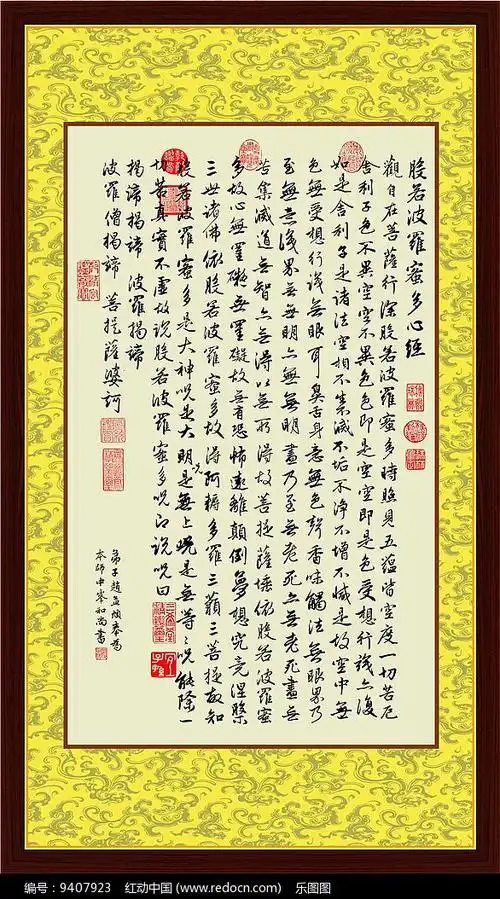 般若波羅蜜多心經
觀自在菩薩行深般若波羅蜜多時照見五蘊皆空度一切苦厄
舍利子色不異空空不異色色即是空空即是色受想行識亦復
如是舍利子是諸法空相不生滅不垢不淨不增不減是故空中無
色無受想行識無眼耳鼻舌身意無色聲香味觸法無眼界乃
至無意識界無無明亦無無明盡乃至無老死亦無老死盡無
苦集滅道無智亦無得以無所得故菩提薩埵依般若波羅蜜
多故心無罣礙無罣礙故無有恐怖遠離顛倒夢想究竟涅槃
三世諸佛依般若波羅蜜多故得阿耨多羅三藐三菩提故知
般若波羅蜜多是大神咒是大明咒是無上咒是無等〻咒能除一
切苦真實不虛故說般若波羅蜜多咒即說咒曰
揭諦揭諦 波羅揭諦
波羅僧揭諦 菩提薩婆訶
弟子趙孟頫奉為
本師中峯和尚書
编号：9407923 红动中国 (www.redocn.com) 乐图图